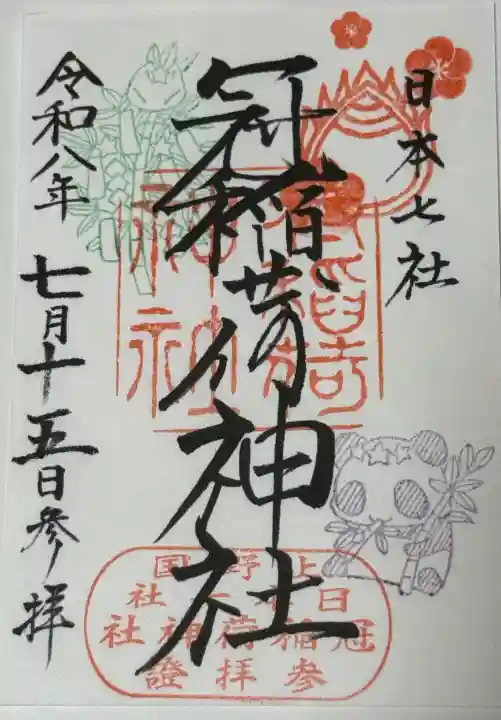 日本七社
冠稲荷神社
令和八年
七月十五日参拝
稲荷
神社
上野国
日本七社
冠稲荷神社
参拝證